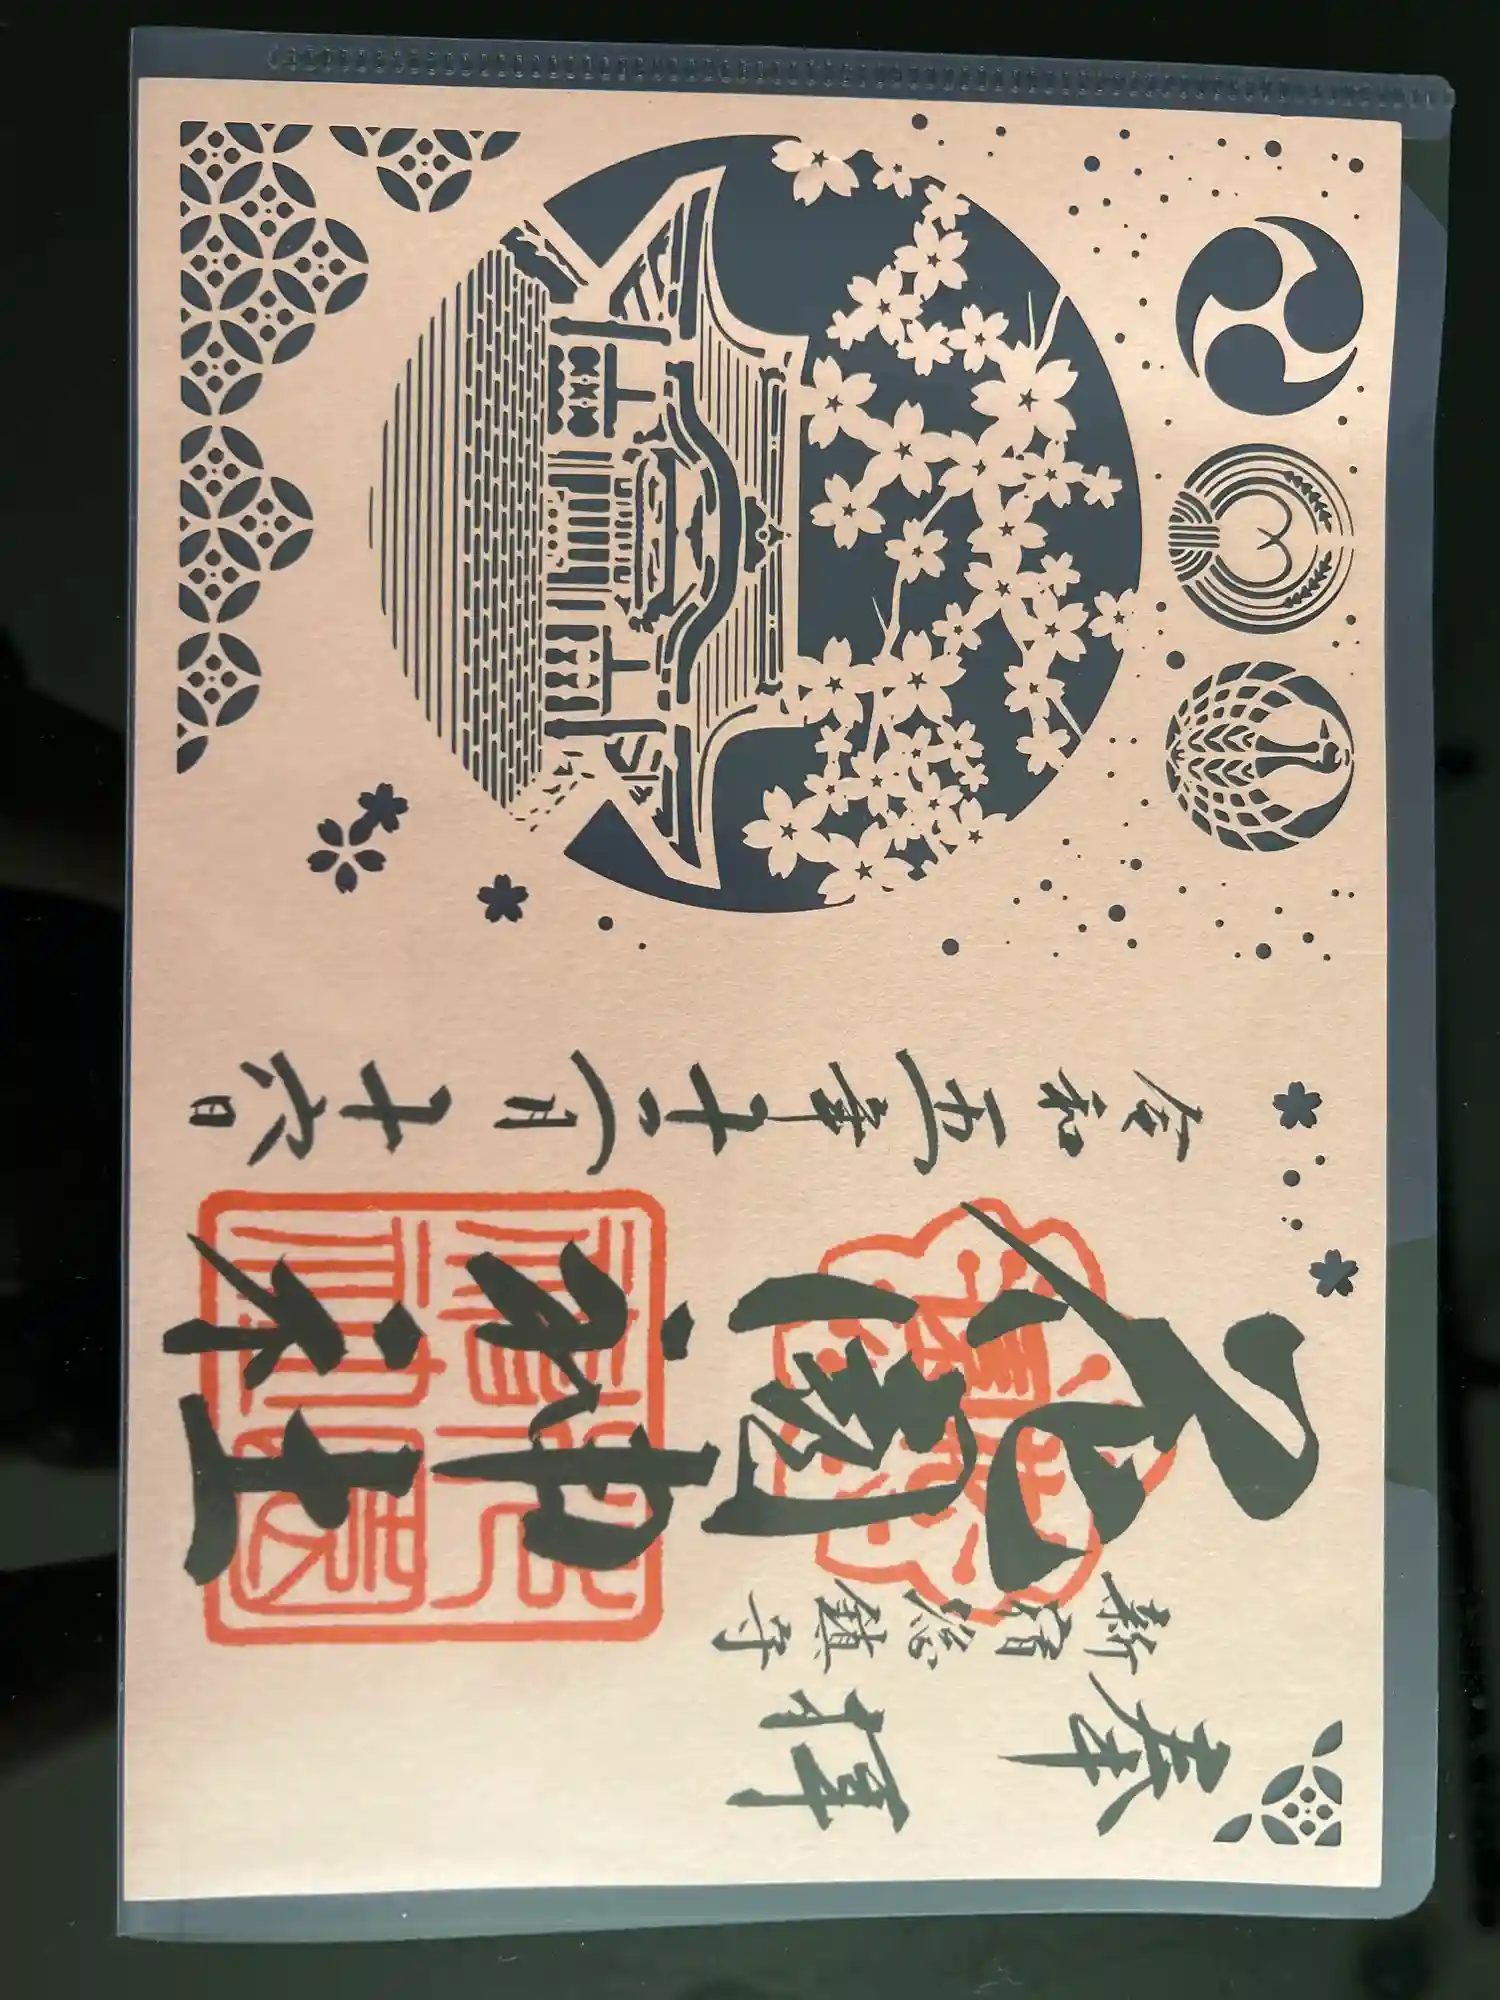 奉拝
新宿総鎮守
花園神社
令和五年十一月十六日